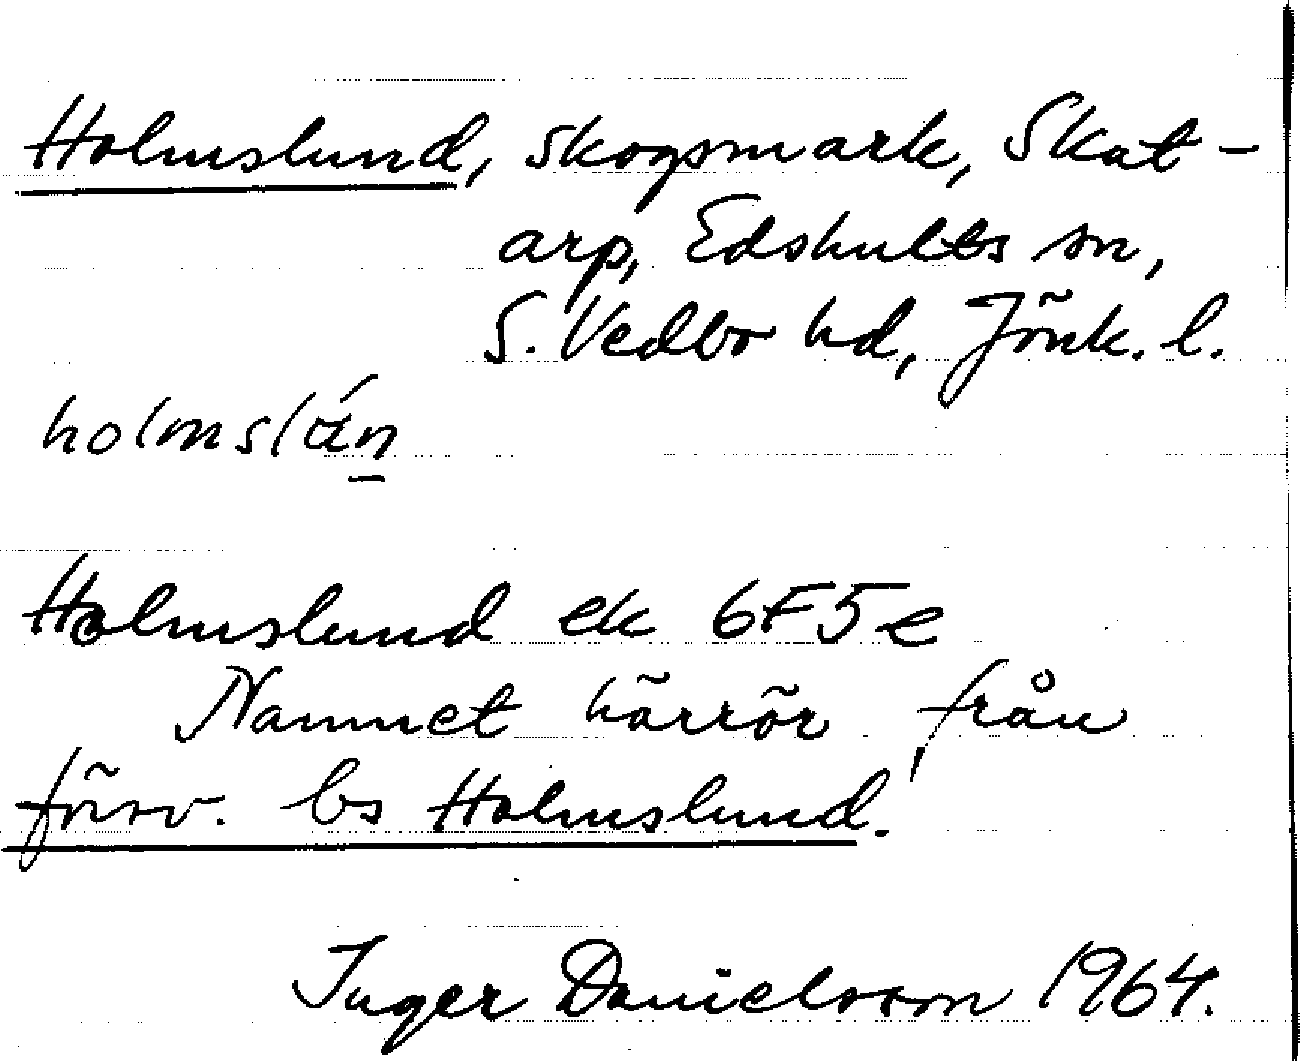 Holmslund, skogsmark, Skat-
arp, Edshults sn,
S. Vedbo hd, Jönk. l.
Holmslund ek 6F5e
Namnet härrör från
försv. bs Holmslund.
Inger Danielsson 1964.